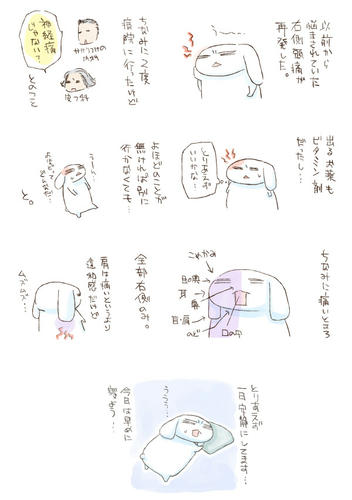 以前から
悩まされていた
右側頭痛が
再発した。
ちなみに2度
病院に行ったけど
神経痛
じゃない?
とのこと
出るお薬も
ビタミン剤
だったし…
とりあえず
いいかな…
よほどのことが
無ければ別に
行かなくても…
と。
うーん…
ちなみに痛いところ
こめかみ
目の奥
耳
鼻
耳・肩
のど
口の中
全部右側のみ。
肩は痛いというより
違和感だけど
ムズムズ…
とりあえず
一日安静にしてます…
今日は早めに
寝よう…
ううう…